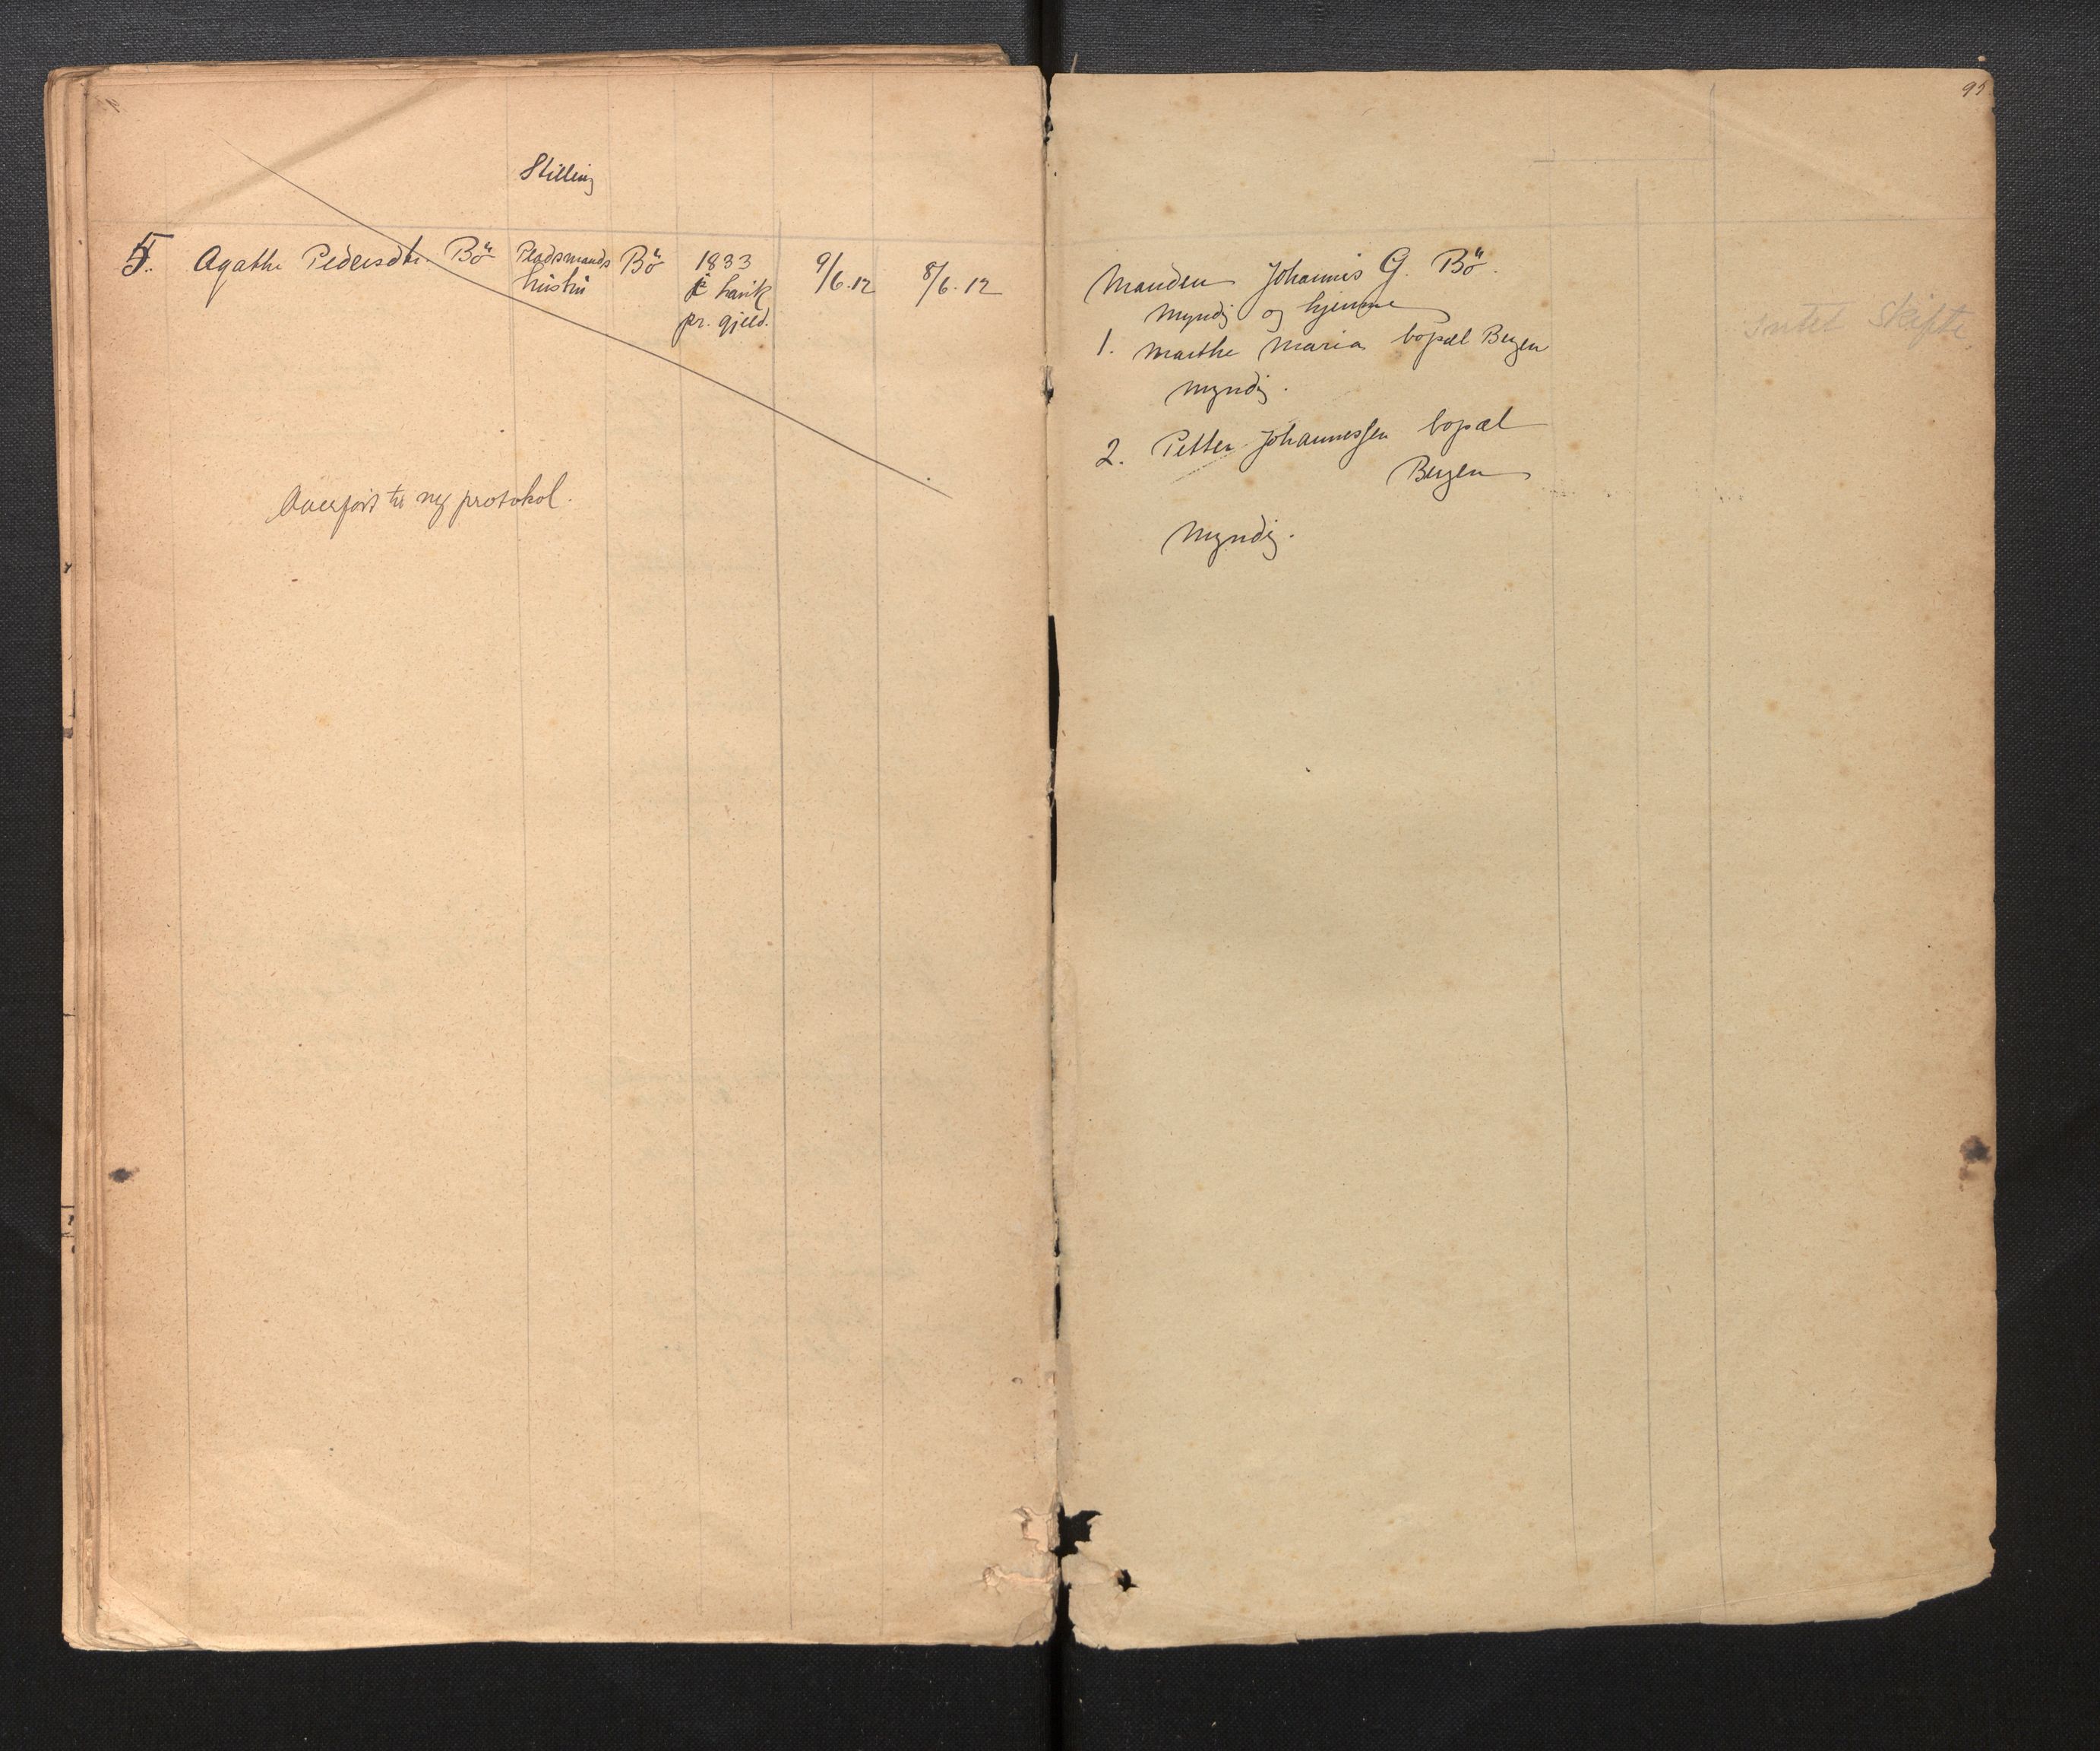 95
Stilling
5. Agathe Pedersdtr. Bö Pladsmands Bö 1833 9/6.12 8/6.12
hustru i Lavik
pr. gjeld.
Overført til ny protokol.
Manden Johannes G. Bö.
Myndig og hjemme
Intet skifte.
1. Marthe Maria bopæl Bergen
myndig.
2. Petter Johannessen bopæl
Bergen
Myndig.